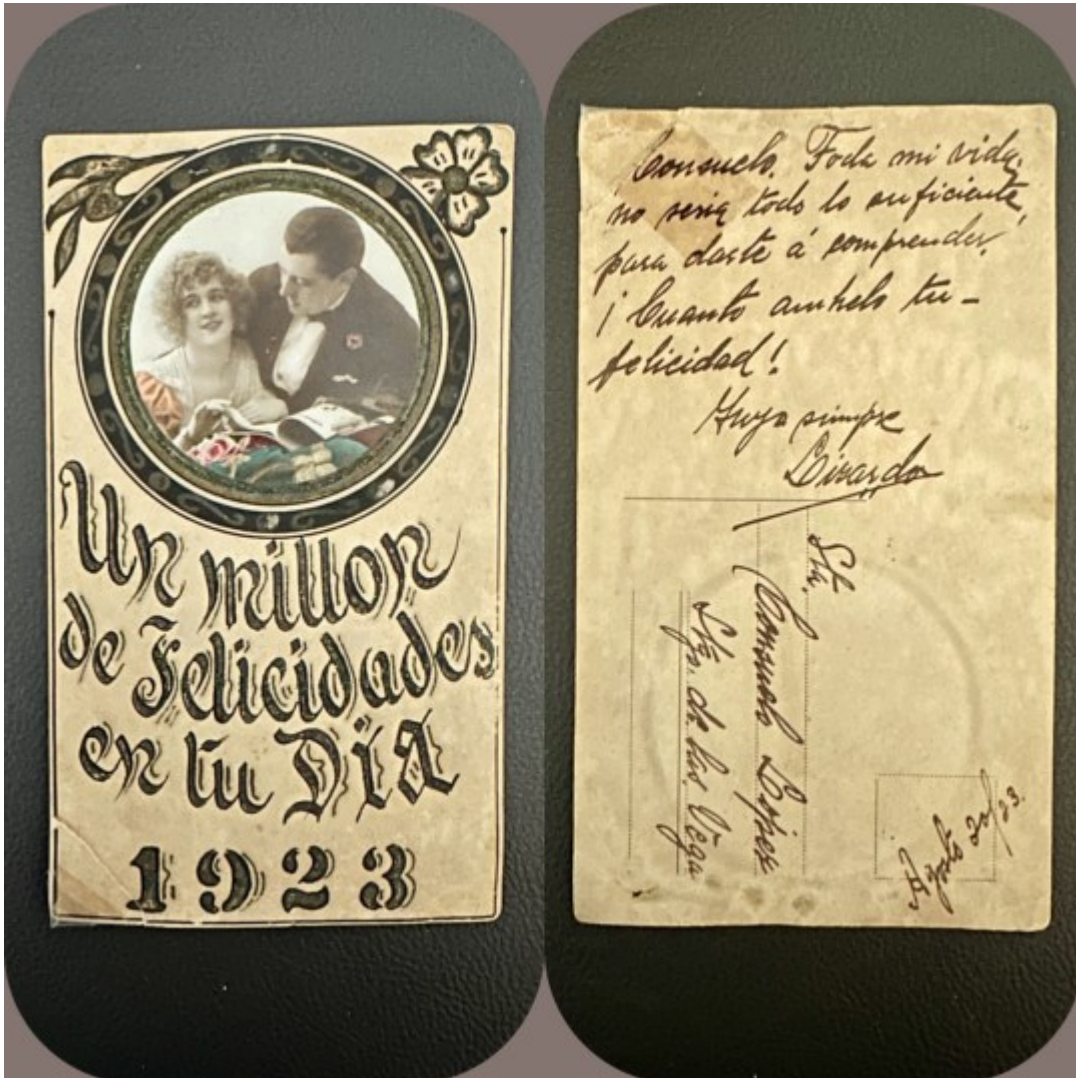 Un millon
de Felicidades
en tu Día
1923
Consuelo. Toda mi vida,
no seria todo lo suficiente,
para darte á comprender,
¡Cuanto anhelo tu -
felicidad!
Tuyo siempre
Lizardo
Sta.
Consuelo Lopez
Stgo. de las Vegas
Agosto 30/23.